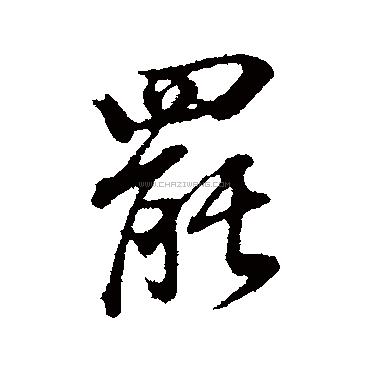 罷
WWW.CHAZIWANG.COM